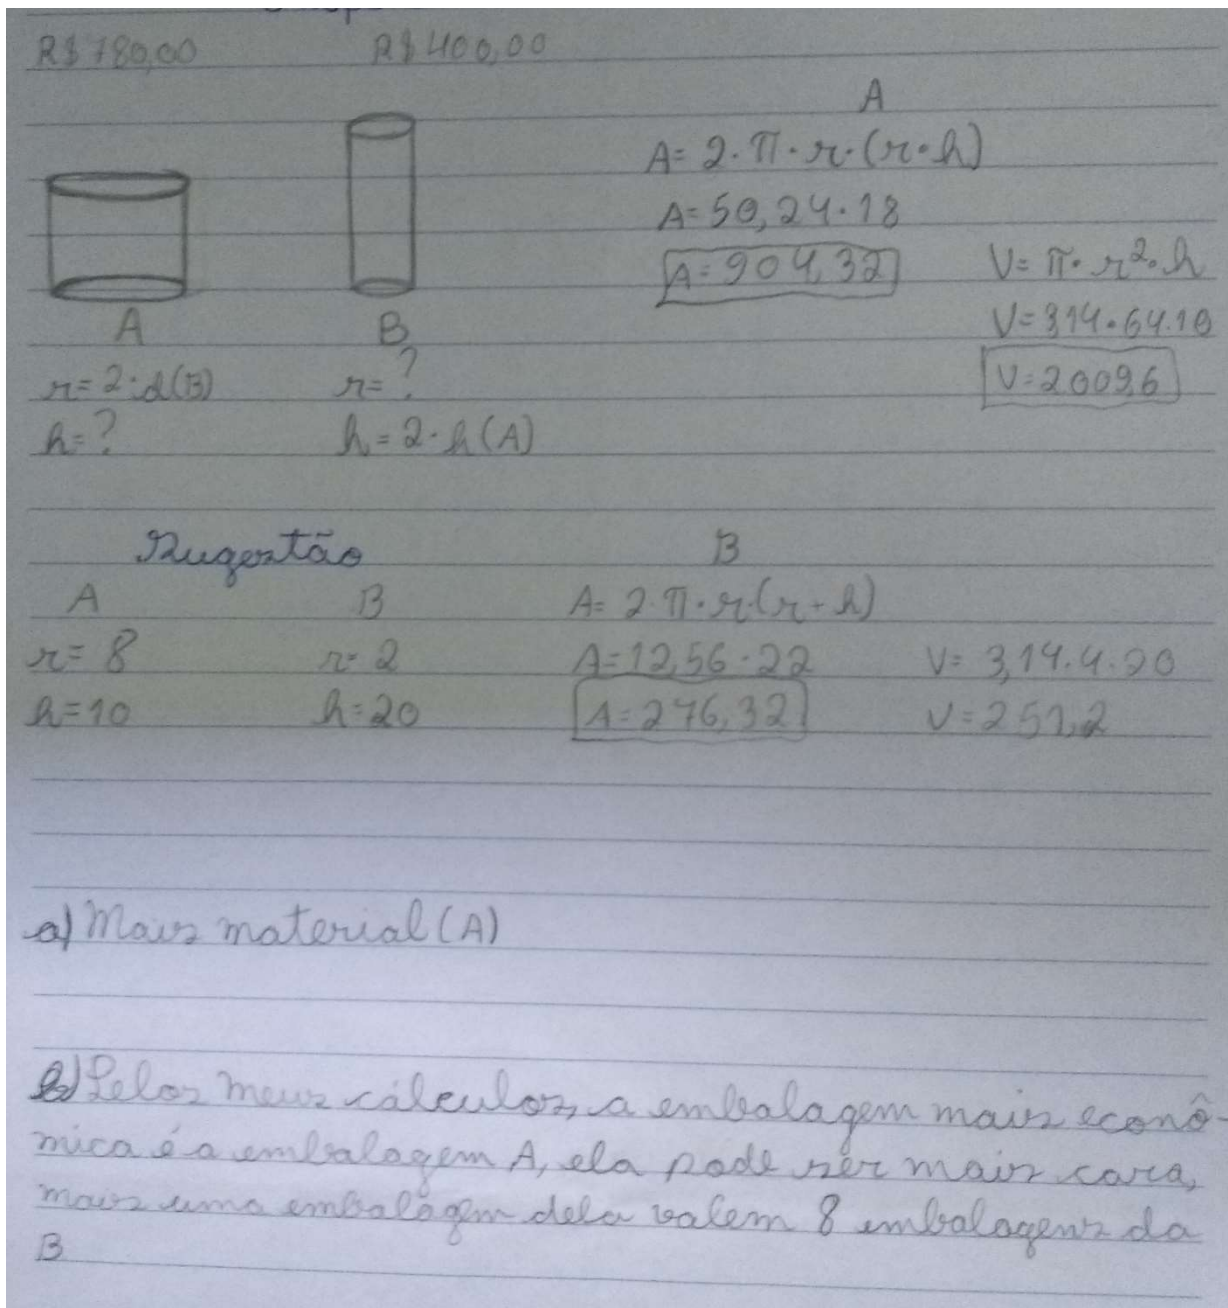 R$ 780,00 R$ 400,00
A
A = 2 · π · r · (r · h)
A = 50,24 · 18
A = 904,32
V = π · r² · h
V = 314 · 64 · 10
V = 2009,6
A B
r = 2 · d(B) r = ?
h = ? h = 2 · h(A)
Sugestão
A B
r = 8 r = 2
h = 10 h = 20
B
A = 2 · π · r · (r + h)
A = 12,56 · 22
A = 276,32
V = 3,14 · 4 · 20
V = 251,2
a) Mais material (A)
b) Pelos meus cálculos, a embalagem mais econô-
mica é a embalagem A, ela pode ser mais cara,
mais uma embalagem dela valem 8 embalagens da
B